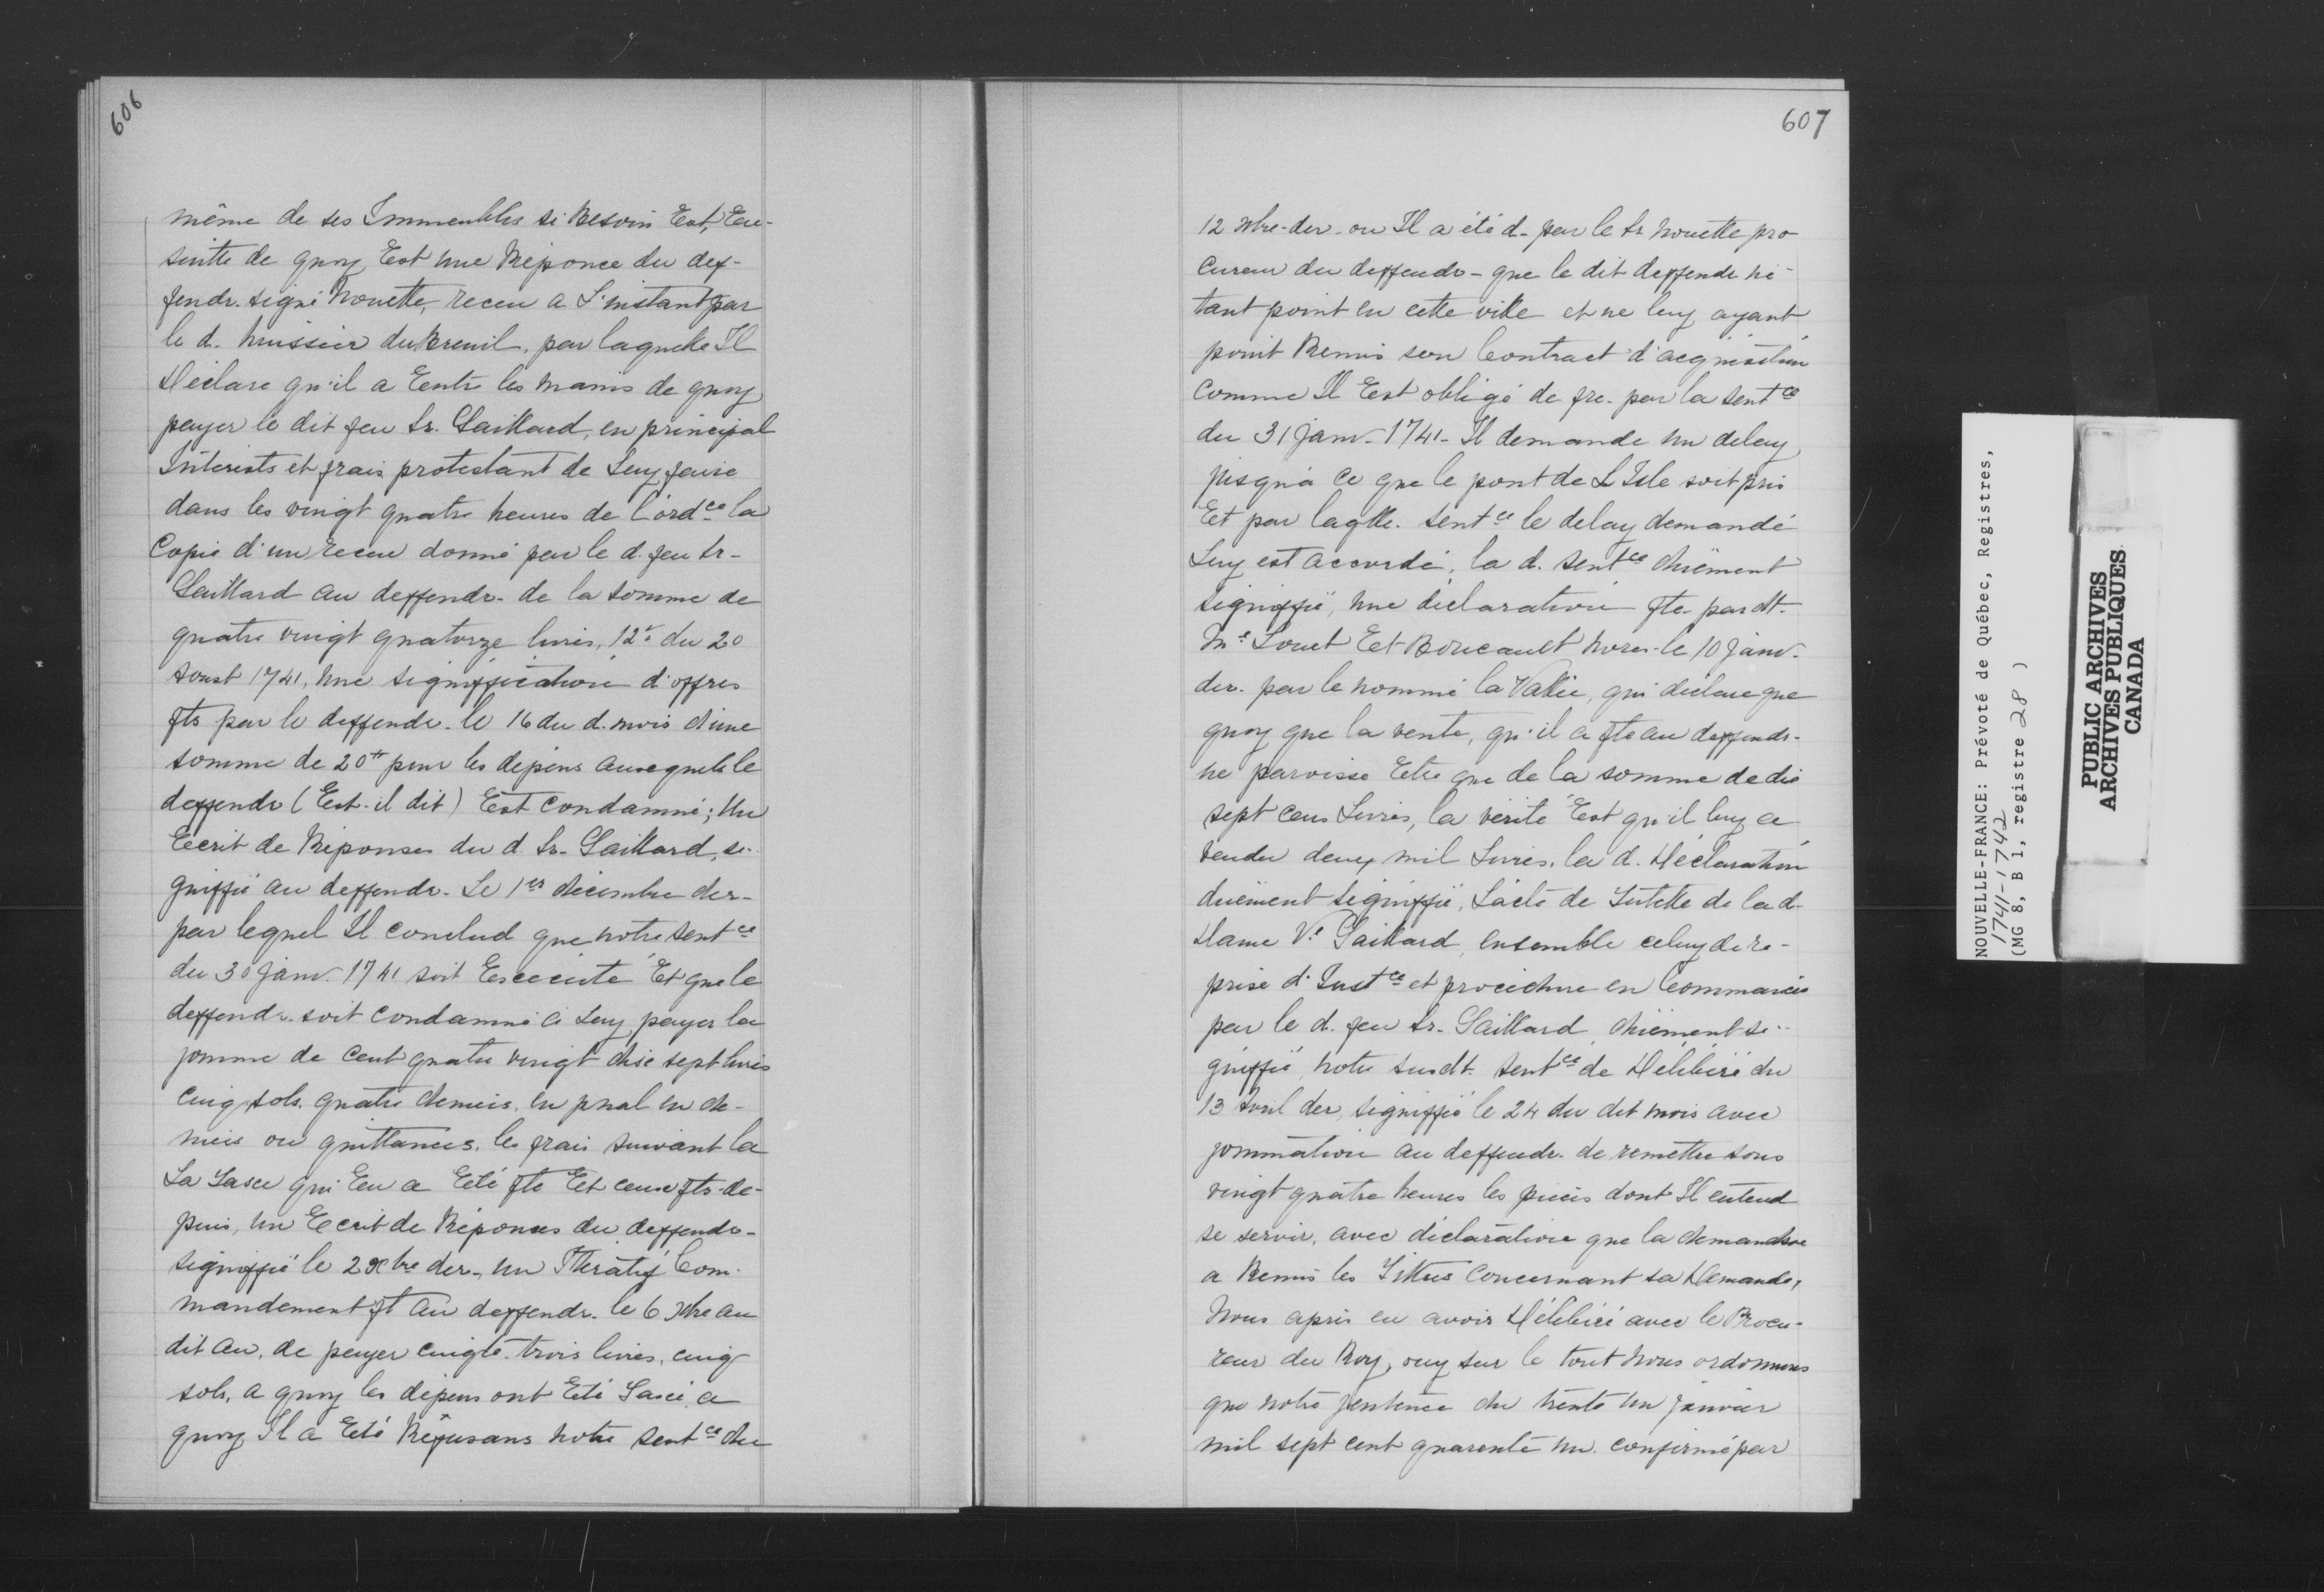 606
même de ses Immeubles si Besoin Est, En-
suitte de quoy Est une Réponce du def-
fendr. signé Nouette, receu a L'instant par
le d. huissier duBreuil, par laquelle Il
Déclare qu'il a Eentre les mains de quoy
payer le dit feu Sr. Gaillard, en principal
Interests et frais protestant de Luy faire
dans les vingt quatre heures de l'ordce la
Copie d'un receu donné par le d. feu Sr-
Gaillard au deffendr. de la somme de
quatre vingt quatorze livres, 12s du 20
aoust 1741, Une signiffication d'offres
fts par le deffendr. le 16 du d. mois d'une
somme de 20tt pour les depens ausequels le
deffendr (Est-il dit) Est condamné; Un
Eecrit de Réponses du d. Sr. Gaillard, si-
gniffié au deffendr. Le 1er décembre der-
par lequel Il conclud que notre sentce
du 30 janv. 1741 soit Exécuté Et que le
deffendr. soit condamné a Luy payer la
somme de cent quatre vingt dix sept livres
cinq sols, quatre deniers, en pnal en de-
niers ou quittances, les frais suivant la
La Taxe qui Een a Eeté fte Eet ceux fts de-
puis, Un Eecrit de Réponses du deffendr-
signiffié le 2 Xbre der-, Un Itératif Com-
mandement ft au deffendr. le 6 Xbre au
dit an, de payer cinqte-trois livres, cinq
sols, a quoy les dépens ont Eté Taxé, a
quoy Il a Eté Réfusans notre sentce du
607
12 Xbre-der- ou Il a été d- par le Sr Nouette pro
cureur du deffendr- que le dit deffendr né-
tant point en cette ville et ne luy ayant
point Remis son Contract d'acquisition
comme Il Est obligé de fre. par la sentce
du 31 janv- 1741- Il demande un delay
jusqu'à ce que le pont de L'Isle soit pris
Eet par laqlle. sentce le delay demandé
Luy est accordé, la d. sentce duëment
signiffié, Une déclaration fte pardt.
Me Louet Eet Boucault nores- le 10 janv.
der. par le nommé la Vallée, qui déclare que
quoy que la vente, qu'il a fte au deffendr-
ne paroisse Eetre que de la somme de dix
sept cens Livres, la vérité Est qu'il luy a
vendu deux mil Livres, la d. Déclaration
duëment signiffié, L'acte de Tutelle de la d-
Dame Ve Gaillard, ensemble celuy de re-
prise d'Instce et procedure en Commancée
par le d. feu Sr. Gaillard, duëment si-
gniffié, notre susdt. sentce de Délibéré du
13 avril der, signiffié le 24 du dit mois avec
sommation au deffendr. de remettre sous
vingt quatre heures les pièces dont Il entend
se servir, avec déclaration que la demandse
a Remis les Titres concernant sa Demande,
Nous après en avoir Délibéré avec le Procu-
reur du Roy, ouy sur le tout Nous ordonnons
que notre sentence du trente un janvier
mil sept cent quarente un, confirmé par
NOUVELLE-FRANCE: Prévoté de Québec, Registres,
1741-1742
(MG 8, B 1, registre 28 )
PUBLIC ARCHIVES
ARCHIVES PUBLIQUES
CANADA